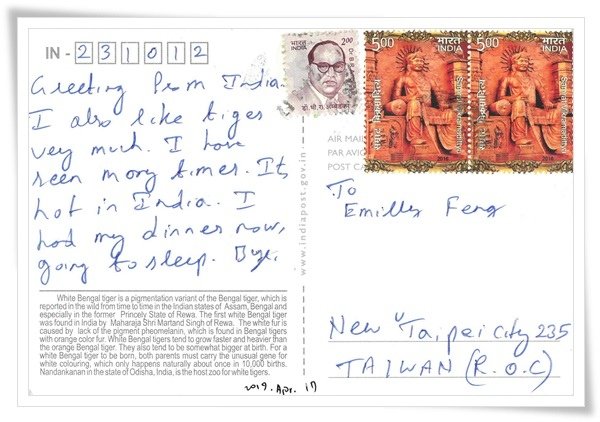 IN - 231012
Greeting from India.
I also like tiges
very much. I have
seen many times. It's
hot in India. I
had my dinner now,
going to sleep. Bye.
White Bengal tiger is a pigmentation variant of the Bengal tiger, which is
reported in the wild from time to time in the Indian states of Assam, Bengal and
especially in the former Princely State of Rewa. The first white Bengal tiger
was found in India by Maharaja Shri Martand Singh of Rewa. The white fur is
caused by lack of the pigment pheomelanin, which is found in Bengal tigers
with orange color fur. White Bengal tigers tend to grow faster and heavier than
the orange Bengal tiger. They also tend to be somewhat bigger at birth. For a
white Bengal tiger to be born, both parents must carry the unusual gene for
white colouring, which only happens naturally about once in 10,000 births.
Nandankanan in the state of Odisha, India, is the host zoo for white tigers.
2019. Apr. 17
www.indiapost.gov.in
भारत INDIA
2.00
डॉ. भी. रा. अम्बेडकर
5.00
भारत
INDIA
2016
5.00
भारत
INDIA
2016
AIR MAIL
PAR AVIO
POST CA
To
Emilly Feng
New Taipei City 235
TAIWAN (R.O.C)